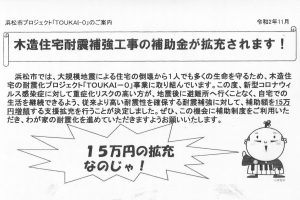 浜松市プロジェクト「TOUKAI-0」のご案内
令和2年11月
木造住宅耐震補強工事の補助金が拡充されます！
浜松市では、大規模地震による住宅の倒壊から1人でも多くの生命を守るため、木造住
宅の耐震化プロジェクト「TOUKAI-0」事業に取り組んでいます。この度、新型コロナウィ
ルス感染症に対して重症化リスクの高い方が、地震後に避難所へ行くことなく、自宅での
生活を継続できるよう、従来より高い耐震性を確保する耐震補強に対して、補助額を15万
円増額する支援拡充を行うことが決定しました。ぜひ、この機会に補助制度をご利用いた
だき、わが家の耐震化を進めていただきますようお願いいたします。
15万円の拡充
なのじゃ！